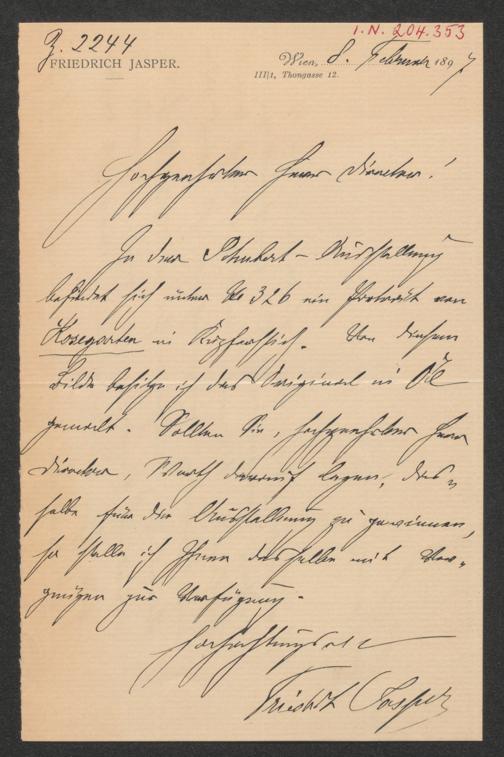 Z. 2244
I.N. 204.353
FRIEDRICH JASPER.
Wien, 8. Februar 1897
III/1, Thongasse 12.
Hochgeehrter Herr Director!
In der Schubert-Ausstellung
befindet sich unter No 326 ein Porträt von
Kosegarten in Kupferstich. Von diesem
Bilde besitze ich das Original in Öl
gemalt. Sollten Sie, hochgeehrter Herr
Director, Werth darauf legen, das-
selbe für die Ausstellung zu gewinnen,
so stelle ich Ihnen dasselbe mit Ver-
gnügen zur Verfügung.
Hochachtungsvoll
Friedrich Jasper